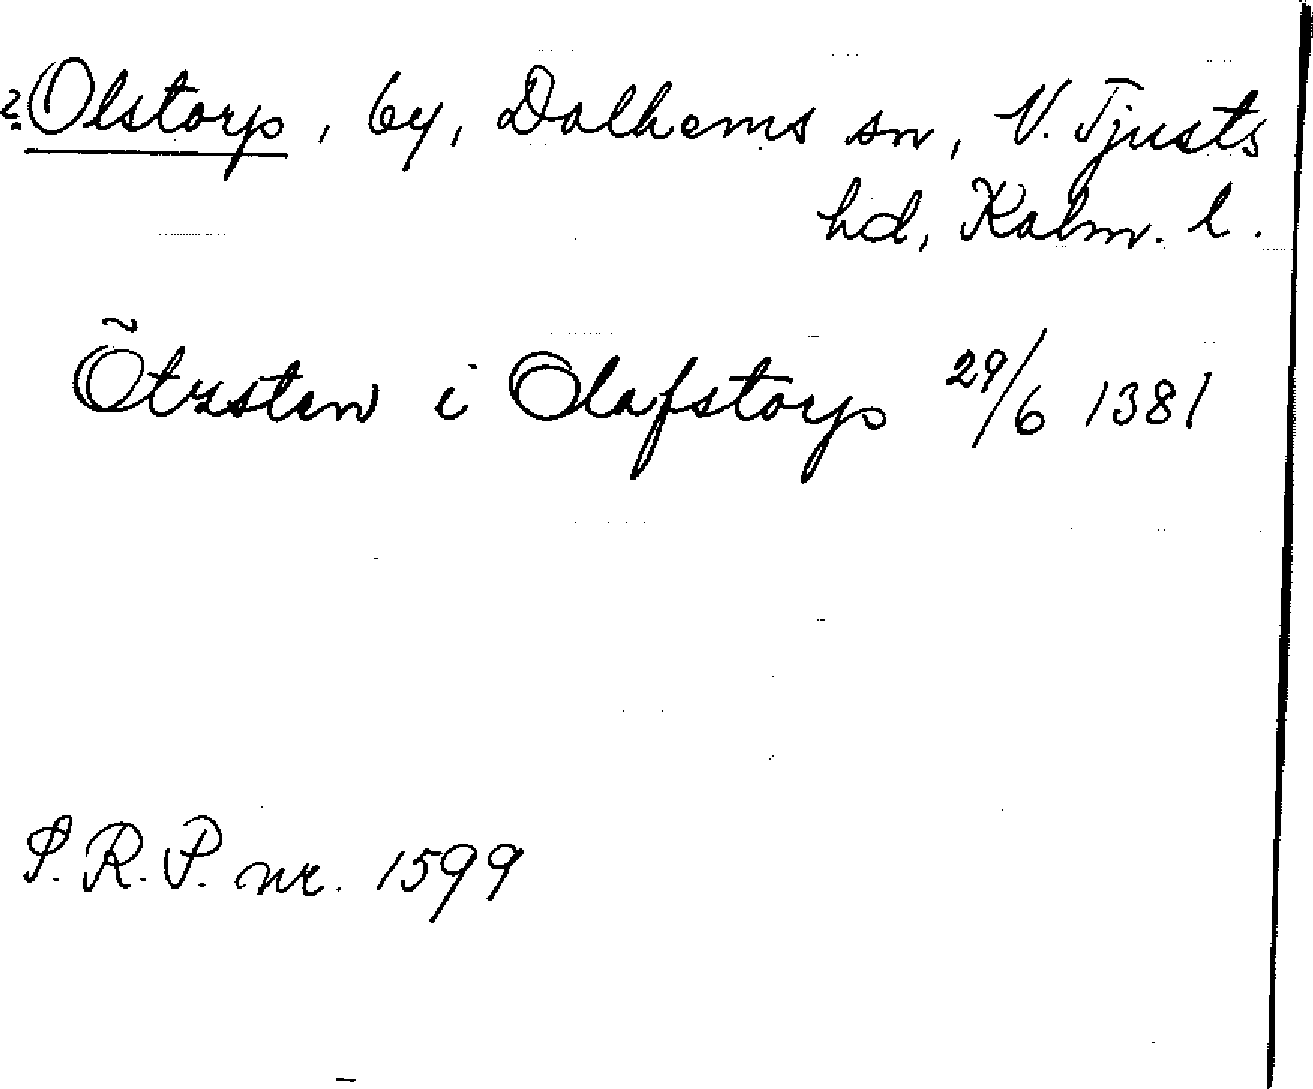 ?Olstorp, by, Dalhems sn, V. Tjusts
hd, Kalm. l.
Õtzsten i Olafstorp 29/6 1381
S.R.P. nr. 1599